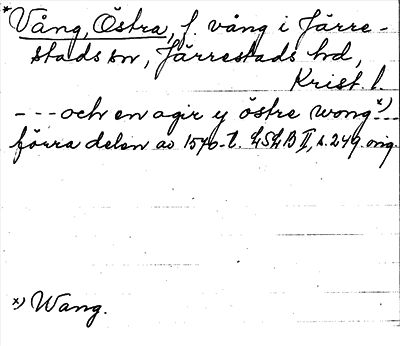 *Vång, Östra, f. vång i Järre-
stads sn, Järrestads hd,
Krist. l.
--- och en agir y östre wong x) --
förra delen av 1540-t. LSLB II, s. 249. orig.
x) Wang.